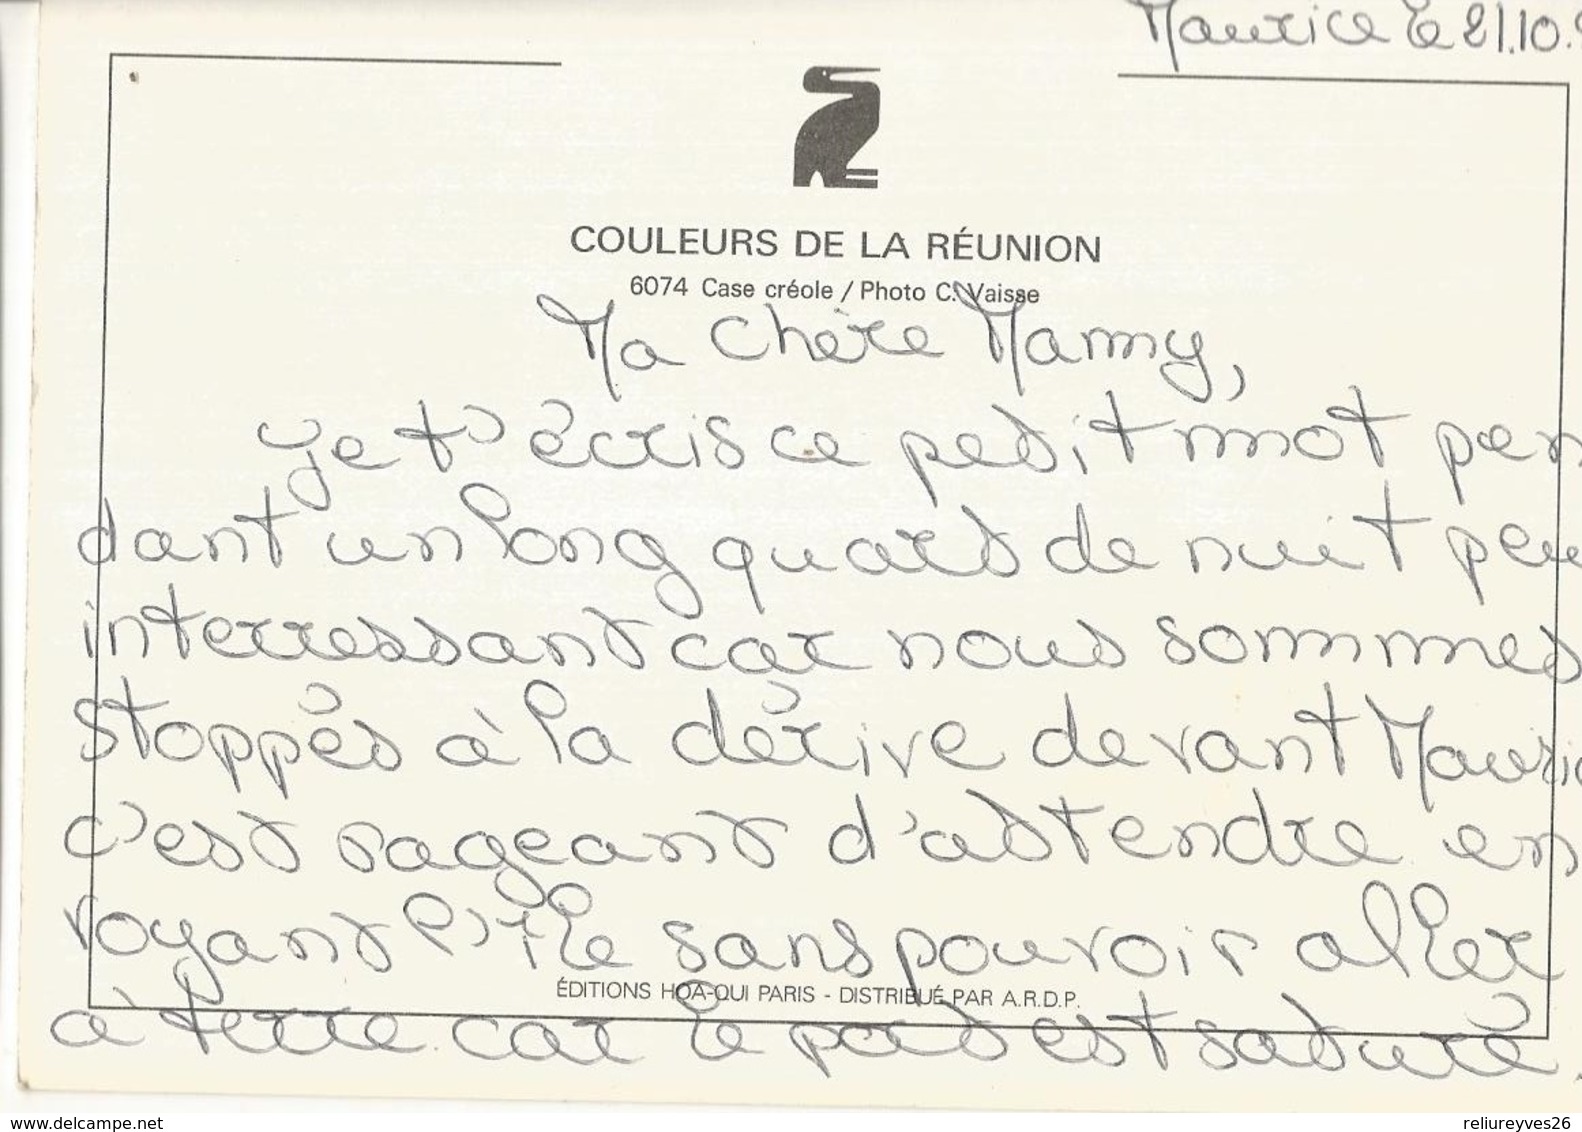 Maurice le 21.10.
COULEURS DE LA RÉUNION
6074 Case créole / Photo C. Vaisse
Ma Chère Mammy,
je t'écris ce petit mot pen
dant un long quart de nuit peu
interressant car nous sommes
stoppés à la dérive devant Mauric
c'est rageant d'attendre en
voyant l'île sans pouvoir aller
ÉDITIONS HOA-QUI PARIS - DISTRIBUÉ PAR A.R.D.P.
à terre car le port est saturé.
www.delcampe.net
reliureyves26